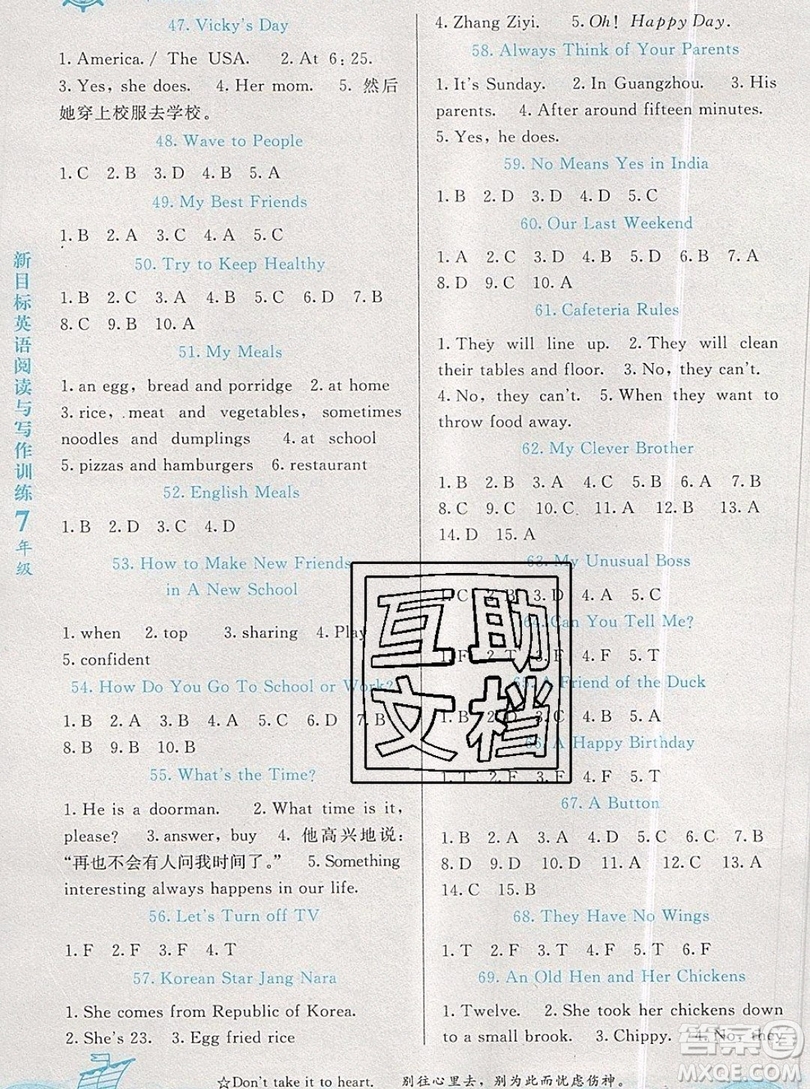 47. Vicky's Day
1. America. / The USA. 2. At 6:25.
3. Yes, she does. 4. Her mom. 5. 然后
她穿上校服去学校。
48. Wave to People
1. C 2. B 3. D 4. B 5. A
49. My Best Friends
1. B 2. A 3. C 4. A 5. C
50. Try to Keep Healthy
1. B 2. C 3. A 4. C 5. A 6. D 7. B
8. C 9. B 10. A
51. My Meals
1. an egg, bread and porridge 2. at home
3. rice, meat and vegetables, sometimes
noodles and dumplings 4. at school
5. pizzas and hamburgers 6. restaurant
52. English Meals
1. B 2. D 3. C 4. D 5. A
53. How to Make New Friends
in A New School
1. when 2. top 3. sharing 4. Play
5. confident
54. How Do You Go To School or Work?
1. B 2. D 3. A 4. C 5. A 6. D 7. B
8. B 9. B 10. B
55. What's the Time?
1. He is a doorman. 2. What time is it,
please? 3. answer, buy 4. 他高兴地说:
“再也不会有人问我时间了。” 5. Something
interesting always happens in our life.
56. Let's Turn off TV
1. F 2. F 3. F 4. T
57. Korean Star Jang Nara
1. She comes from Republic of Korea.
2. She's 23. 3. Egg fried rice
4. Zhang Ziyi. 5. Oh! Happy Day.
58. Always Think of Your Parents
1. It's Sunday. 2. In Guangzhou. 3. His
parents. 4. After around fifteen minutes.
5. Yes, he does.
59. No Means Yes in India
1. B 2. D 3. D 4. D 5. C
60. Our Last Weekend
1. A 2. C 3. C 4. A 5. B 6. A 7. C
8. D 9. C 10. A
61. Cafeteria Rules
1. They will line up. 2. They will clean
their tables and floor. 3. No, they can't.
4. No, they can't. 5. When they want to
throw food away.
62. My Clever Brother
1. C 2. B 3. D 4. B 5. C 6. A 7. B
8. C 9. D 10. B 11. A 12. A 13. C
14. D 15. A
63. My Unusual Boss
1. C 2. B 3. D 4. B 5. C
64. Can You Tell Me?
F 4. F 5. T
A Friend of the Duck
1. B 2. D 3. C 4. B 5. A
66. A Happy Birthday
1. T 2. F 3. F 4. F 5. T
67. A Button
1. B 2. A 3. A 4. D 5. C 6. C 7. B
8. D 9. D 10. C 11. D 12. A 13. A
14. C 15. B
68. They Have No Wings
1. T 2. F 3. F 4. T 5. T
69. An Old Hen and Her Chickens
1. Twelve. 2. She took her chickens down
to a small brook. 3. Chippy. 4. No, they
新目标英语阅读与写作训练7年级
☆Don't take it to heart. 别往心里去，别为此而忧虑伤神。
互助
文档
答案圈
MXQE.COM